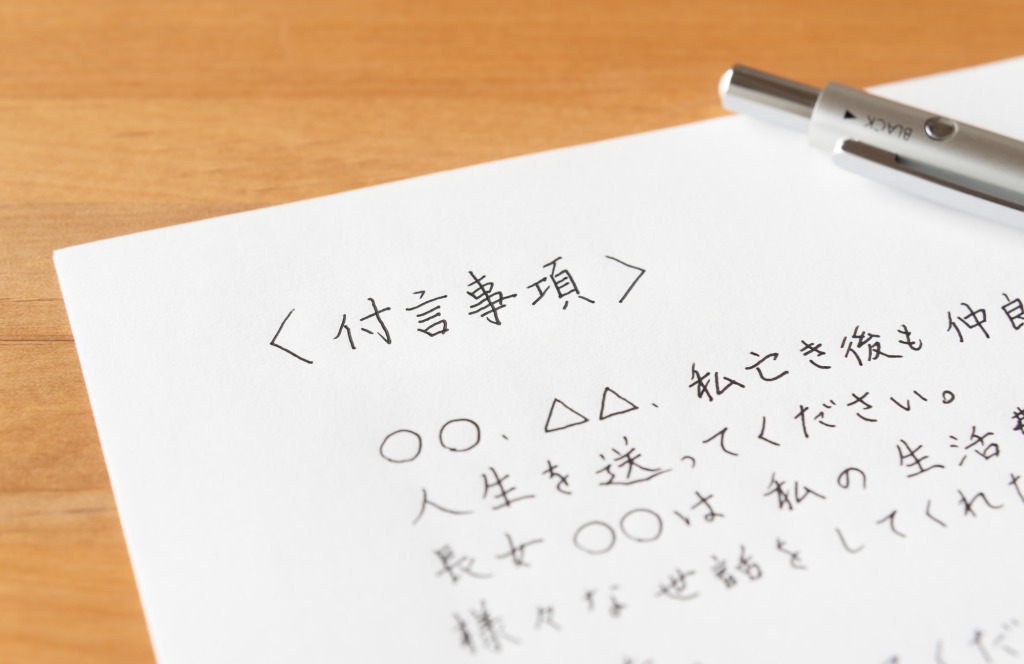 BLACK
<付言事項>
○○、△△、私亡き後も仲良
人生を送ってください。
長女○○は私の生活
様々な世話をしてくれた
くだ